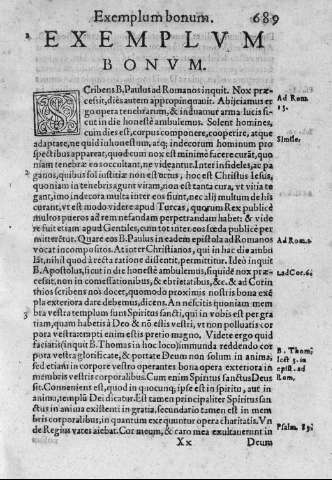 Exemplum bonum. 689
EXEMPLVM
BONVM.
SCribens B. Paulus ad Romanos inquit. Nox præ-
cessit, dies autem appropinquauit. Abijciamus er-
go opera tenebrarum, & induamur arma lucis si-
cut in die honestè ambulemus. Solent homines,
cum dies est, corpus componere, cooperire, atque
adaptare, ne quid inhonestum, aut indecorum hominum pro
spectibus appareat, quod cum nox est minimè facere curāt, quo
niam tenebræ eos occultant, ne videantur. Inter infideles, ac pa
ganos, quibus sol iustitiæ non est ortus, hoc est Christus Iesus,
quoniam in tenebris agunt vitam, non est tanta cura, vt vitia te
gant, imo indecora multa inter eos sunt, nec alij multum de his
curant, vt est modo videre apud Turcas, quorum Rex publicè
multos pueros ad rem nefandam perpetrandam habet: & vide
re fuit etiam apud Gentiles, cum tot inter eos fœda publicè per
mitterētur. Quare eos B. Paulus in eadem epistola ad Romanos
vocat incompositos. At inter Christianos, qui in hac die ambu
lāt, nihil quod à recta ratione dissentit, permittitur. Ideo inquit
B. Apostolus, sicut in die honestè ambulemus, siquidē nox præ-
cessit, non in comessationibus, & ebrietatibus, &c. & ad Corin
thios scribens nos docet, quomodo proximis nostris bona exē
pla exteriora dare debemus, dicens. An nescitis quoniam mem
bra vestra templum sunt Spiritus sancti, qui in vobis est per gra
tiam, quam habetis à Deo & nō estis vestri, vt non polluatis cor
pora vestra: empti enim estis pretio magno. Videte ergo quid
faciatis (inquit B. Thomas in hoc loco) immunda reddendo cor
pora vestra glorificate, & portate Deum non solum in anima,
sed etiam in corpore vestro operantes bona opera exteriora in
membris vestris corporalibus. Cum enim Spiritus sanctus Deus
sit. Conueniens est, quod in quocunq; ipse est in spiritu, aut in
anima, templū Dei dicatur. Est tamen principaliter Spiritus san
ctus in anima existenti in gratia, secundario tamen est in mem
bris corporalibus, in quantum exequuntur opera charitatis. Vn
de Regius vates aiebat. Cor meum, & caro mea exultauerunt in
Xx Deum
Ad Rom.
13.
Simile.
Ad Rom. 1.
1. ad Cor. 6.
B. Thom.
lect. 3. in
epist. ad
Rom.
Psalm. 83.